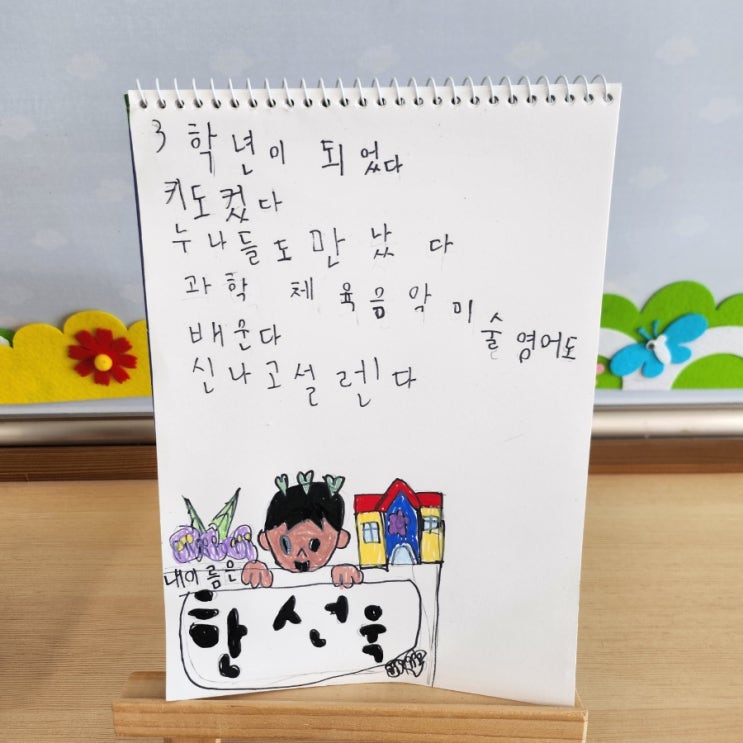 3학년이 되었다
키도 컸다
누나들도 만났다
과학 체육음악 미술 영어도
배운다
신나고설렌다
내이름은
한선욱